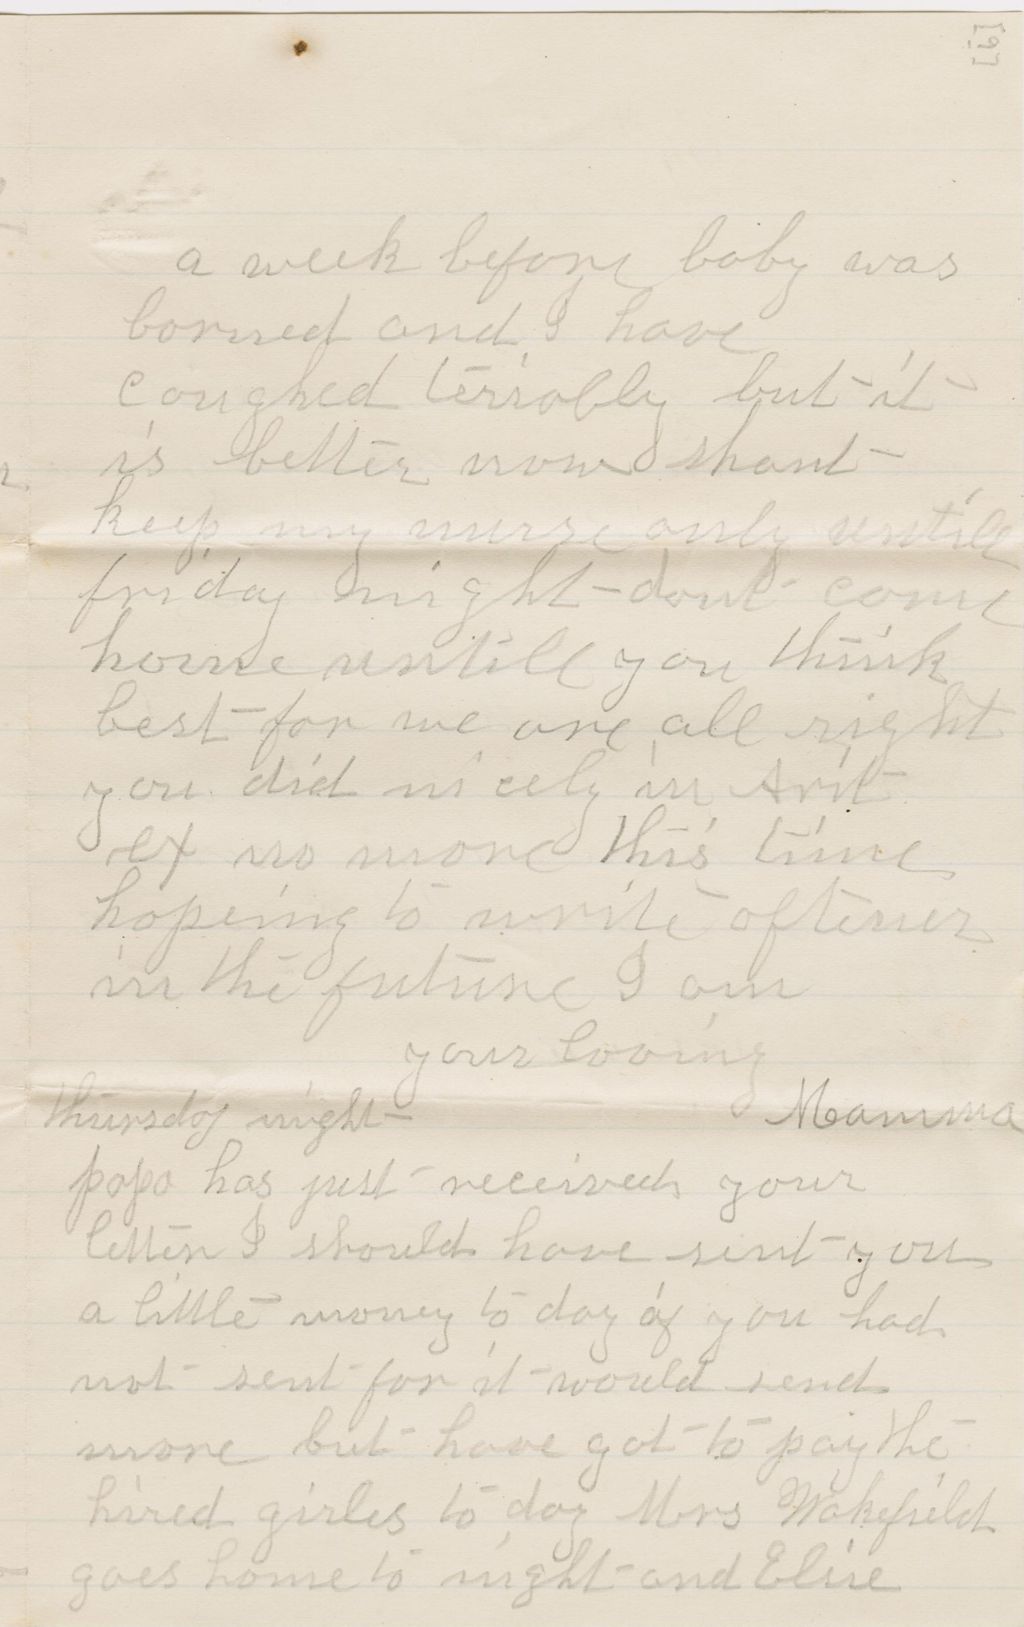 [6]
a week before baby was
borned and I have
coughed terriably but it
is better now shant
keep my nurse only untill
friday night dont come
home untill you think
best for we are all right
you did nicely in Arit
ex no more this time
hopeing to write oftener
in the future I am
your loving
Mamma
thursday night
papa has just received your
letter I should have sent you
a little money to day if you had
not sent for it would send
more but have got to pay the
hired girles to day Mrs Wakefield
goes home to night and